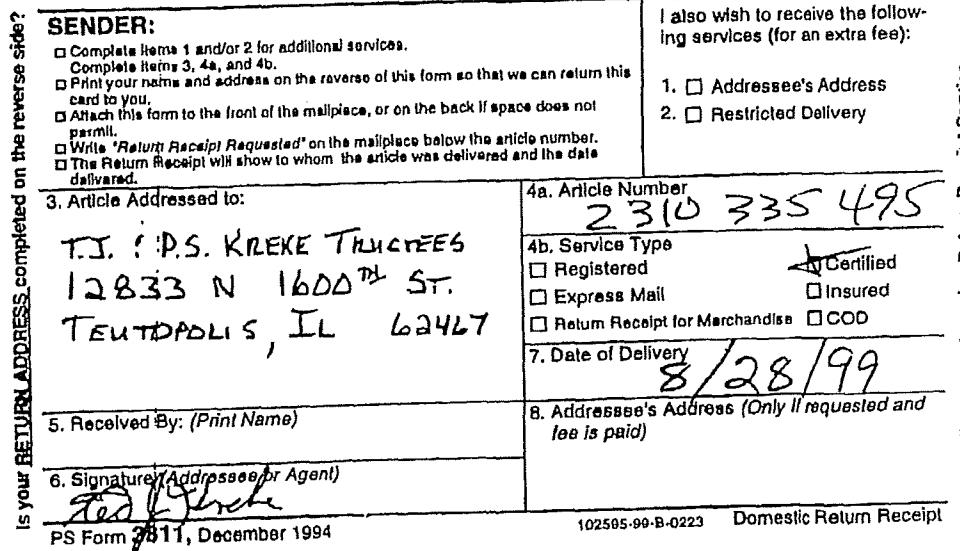 Is your RETURN ADDRESS completed on the reverse side?
SENDER:
☐ Complete items 1 and/or 2 for additional services.
Complete items 3, 4a, and 4b.
☐ Print your name and address on the reverse of this form so that we can return this
card to you.
☐ Attach this form to the front of the mailpiece, or on the back if space does not
permit.
☐ Write "Return Receipt Requested" on the mailpiece below the article number.
☐ The Return Receipt will show to whom the article was delivered and the date
delivered.
I also wish to receive the follow-
ing services (for an extra fee):
1. ☐ Addressee's Address
2. ☐ Restricted Delivery
3. Article Addressed to:
T.J. & P.S. KREKE TRUCTEES
12833 N 1600TH ST.
TEUTOPOLIS, IL 62467
4a. Article Number
2310 335 495
4b. Service Type
☐ Registered
☑ Certified
☐ Express Mail
☐ Insured
☐ Return Receipt for Merchandise
☐ COD
7. Date of Delivery
8/28/99
5. Received By: (Print Name)
8. Addressee's Address (Only if requested and
fee is paid)
6. Signature (Addressee or Agent)
Ted J Kreke
PS Form 3811, December 1994
102595-99-B-0223
Domestic Return Receipt